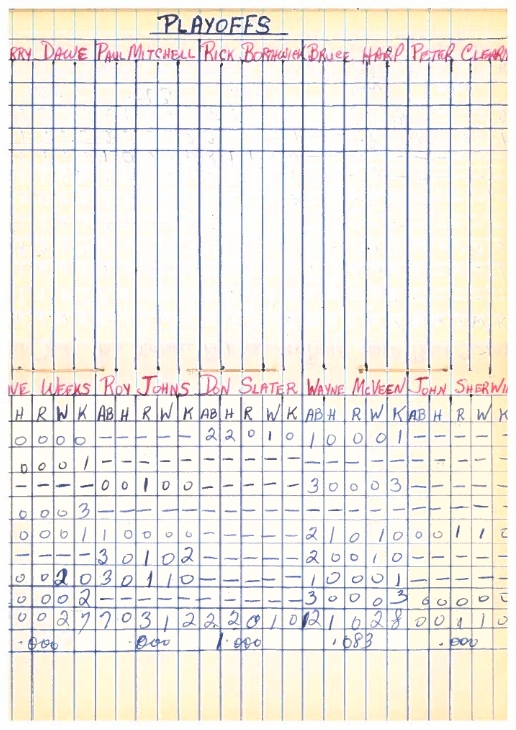 PLAYOFFS
RRY DAWE PAUL MITCHELL RICK BORTHWICK BRUCE HARP PETER CLEAR
VE WEEKS ROY JOHNS DON SLATER WAYNE McVEEN JOHN SHERWI
H R W K AB H R W K AB H R W K AB H R W K AB H R W K
0 0 0 0 - - - - - 2 2 0 1 0 1 0 0 0 1 - - - - -
0 0 0 1 - - - - - - - - - - - - - - - - - - - -
- - - - 0 0 1 0 0 - - - - - 3 0 0 0 3 - - - - -
0 0 0 3 - - - - - - - - - - - - - - - - - - - -
0 0 0 1 1 0 0 0 0 - - - - - 2 1 0 1 0 0 0 1 1 0
- - - - 3 0 1 0 2 - - - - - 2 0 0 1 0 - - - - -
0 0 2 0 3 0 1 1 0 - - - - - 1 0 0 0 1 - - - - -
0 0 0 2 - - - - - - - - - - 3 0 0 0 3 0 0 0 0 0
0 0 2 7 7 0 3 1 2 2 2 0 1 0 12 1 0 2 8 0 0 1 1 0
.000 .000 1.000 .083 .000